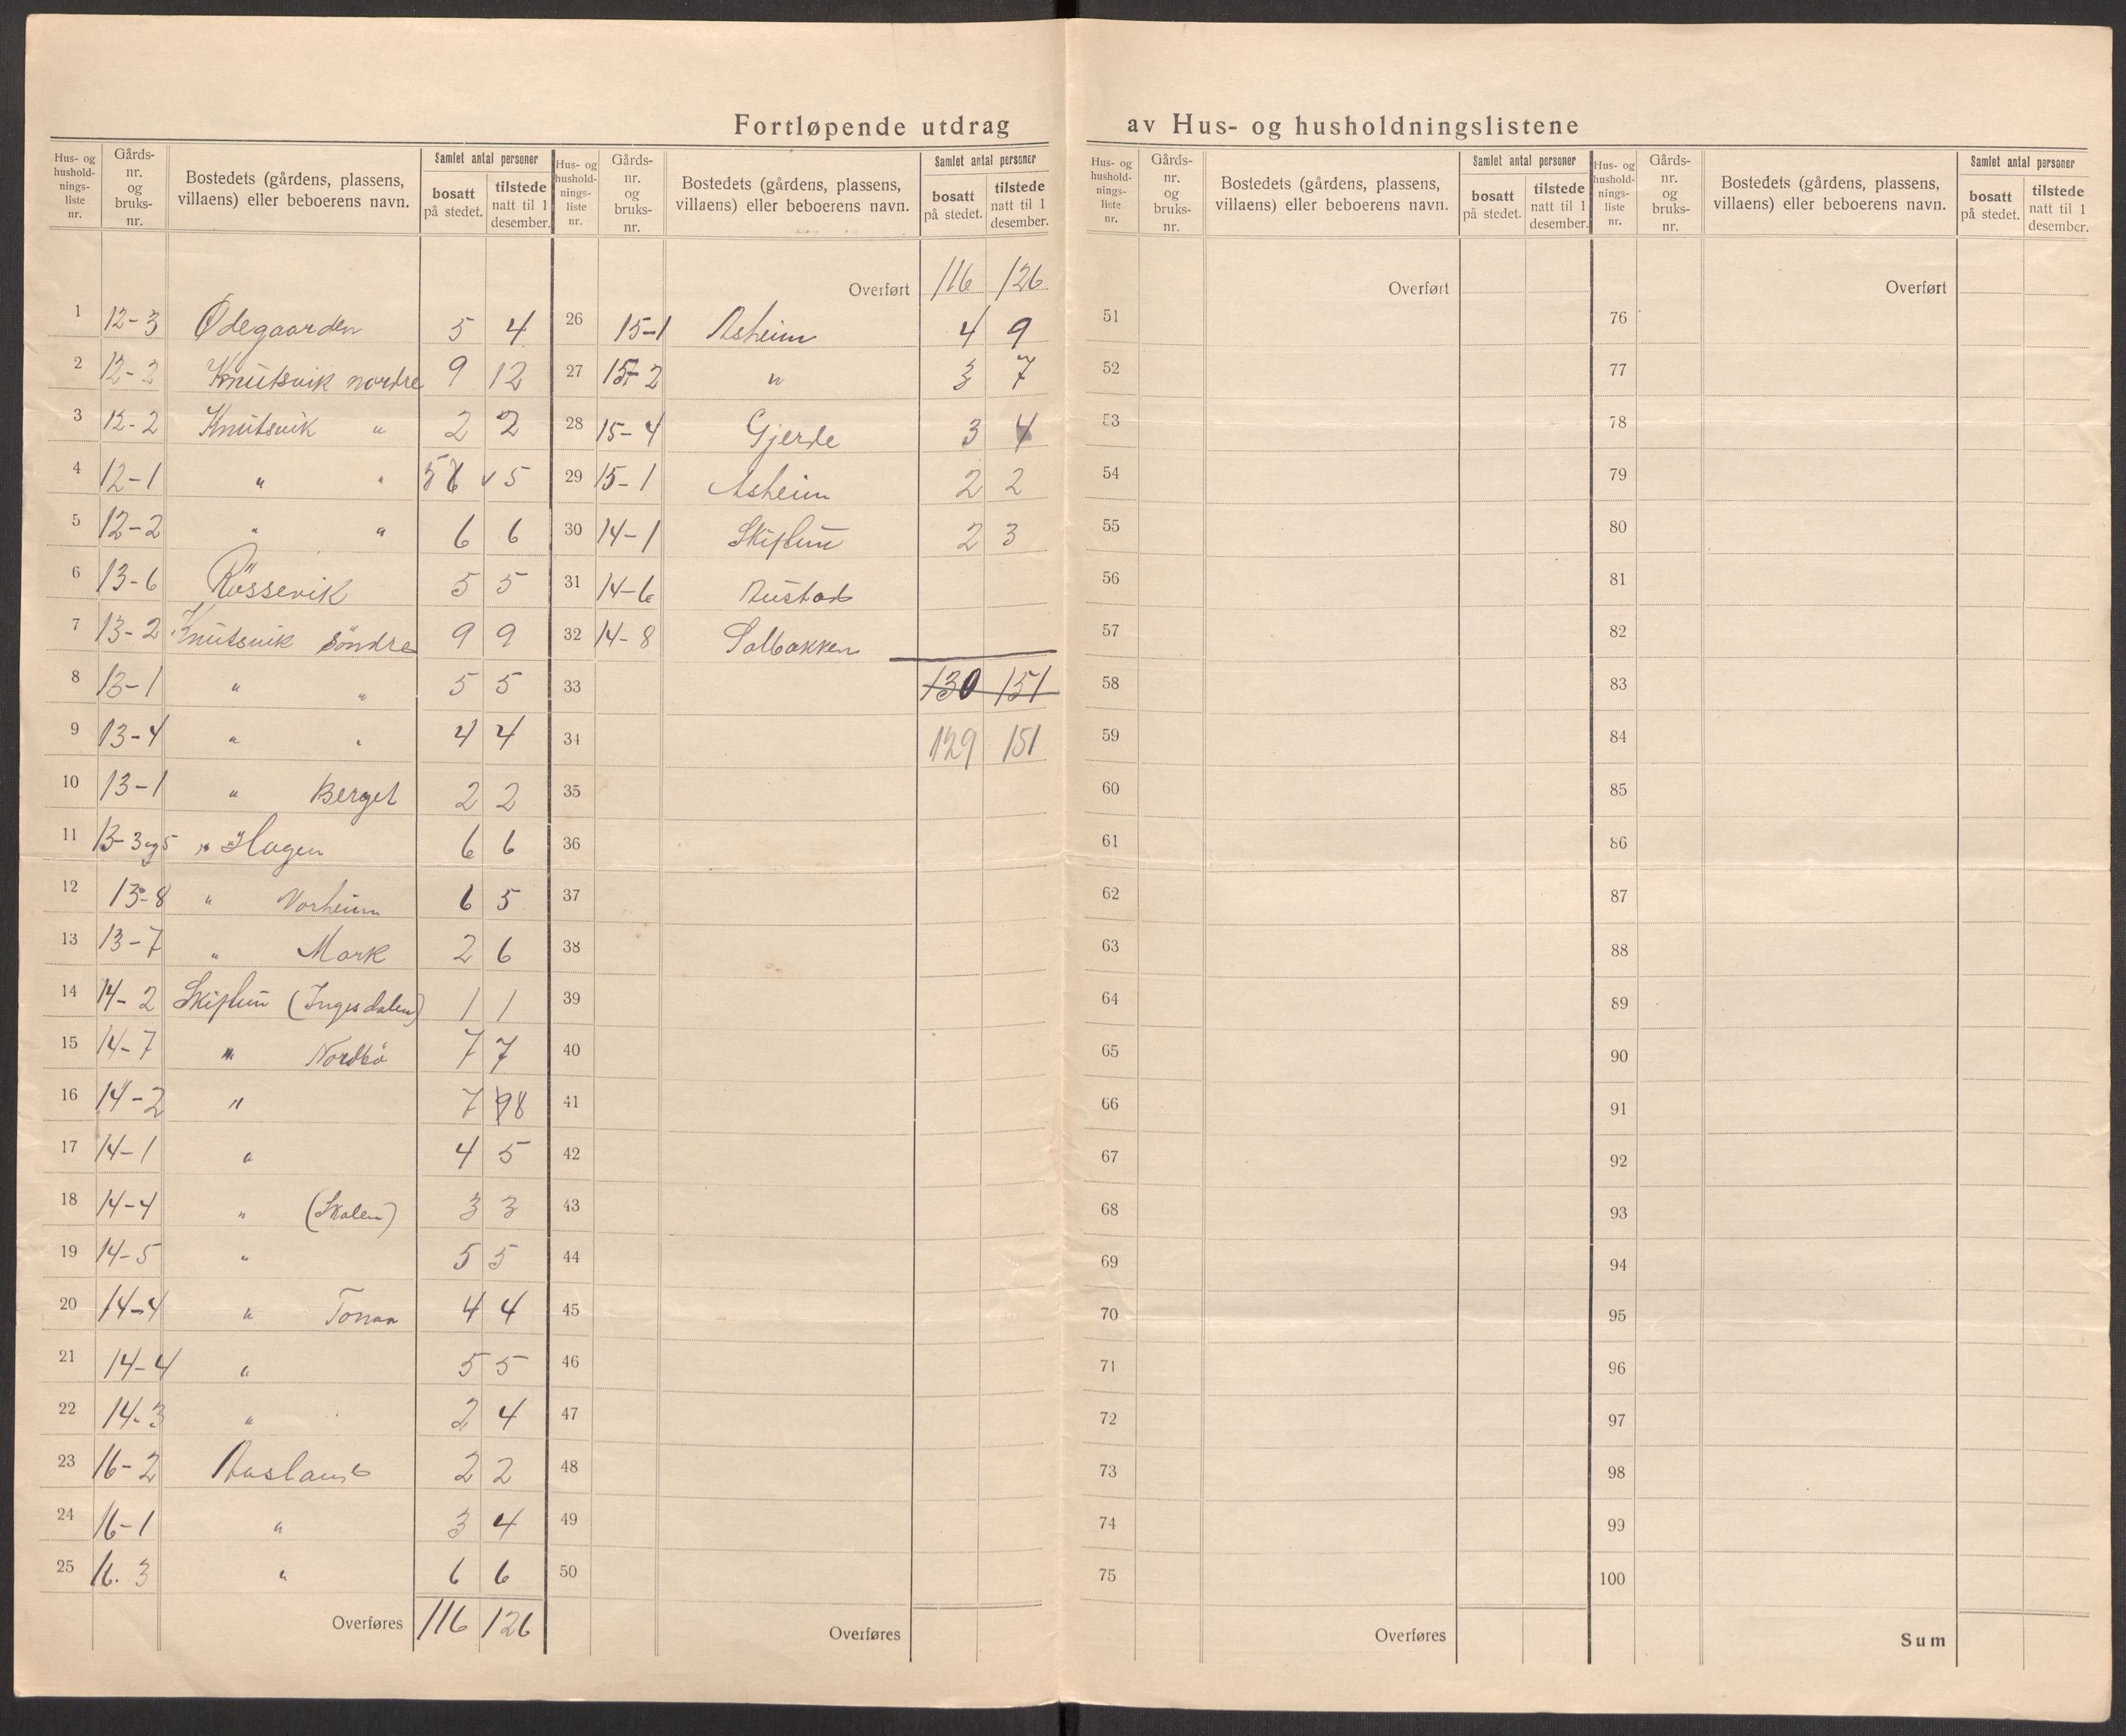 Fortløpende utdrag av Hus- og husholdningslistene
Hus- og hushold- nings- liste nr. | Gårds- nr. og bruks- nr. | Bostedets (gårdens, plassens, villaens) eller beboerens navn. | Samlet antal personer | bosatt på stedet. | tilstede natt til 1 desember.
1 12-3 Ødegaarden 5 4
2 12-2 Knutsvik nordre 9 12
3 12-2 Knutsvik " 2 2
4 12-1 " " 5 6 v 5
5 12-2 " " 6 6
6 13-6 Røssevik 5 5
7 13-2 Knutsvik söndre 9 9
8 13-1 " " 5 5
9 13-4 " " 4 4
10 13-1 " Berget 2 2
11 13-3 og 5 " Hagen 6 6
12 13-8 " Vorheim 6 5
13 13-7 " Mark 2 6
14 14-2 Skiftun (Ingesdalen) 1 1
15 14-7 " Nordbö 7 7
16 14-2 " 7 98
17 14-1 " 4 5
18 14-4 " (Skalen) 3 3
19 14-5 " 5 5
20 14-4 " 4 4
21 14-4 " 5 5
22 14-3 " 2 4
23 16-2 2 2
24 16-1 " 3 4
25 16.3 " 6 6
Overføres 116 126
Hus- og hushold- nings- liste nr. | Gårds- nr. og bruks- nr. | Bostedets (gårdens, plassens, villaens) eller beboerens navn. | Samlet antal personer | bosatt på stedet. | tilstede natt til 1 desember.
Overført 116 126
26 15-1 Asheim 4 9
27 15-2 " 3 7
28 15-4 Gjerde 3 4
29 15-1 Asheim 2 2
30 14-1 Skiftun 2 3
31 14-6
32 14-8 Solbakken
33 130 151
34 129 151
35
36
37
38
39
40
41
42
43
44
45
46
47
48
49
50
Overføres
Hus- og hushold- nings- liste nr. | Gårds- nr. og bruks- nr. | Bostedets (gårdens, plassens, villaens) eller beboerens navn. | Samlet antal personer | bosatt på stedet. | tilstede natt til 1 desember.
Overført
51
52
53
54
55
56
57
58
59
60
61
62
63
64
65
66
67
68
69
70
71
72
73
74
75
Overføres
Hus- og hushold- nings- liste nr. | Gårds- nr. og bruks- nr. | Bostedets (gårdens, plassens, villaens) eller beboerens navn. | Samlet antal personer | bosatt på stedet. | tilstede natt til 1 desember.
Overført
76
77
78
79
80
81
82
83
84
85
86
87
88
89
90
91
92
93
94
95
96
97
98
99
100
Sum